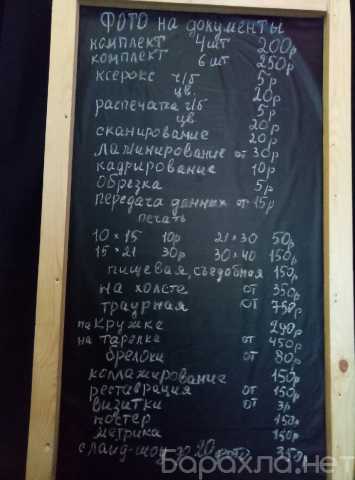 ФОТО на документы
комплект 4 шт 200р
комплект 6 шт 250р
ксерокс ч/б 5р
цв. 20р
распечатка ч/б 5р
цв 20р
сканирование 20р
ламинирование от 30р
кадрирование 10р
обрезка 5р
передача данных от 15р
печать
10×15 10р 21×30 50р
15×21 30р 30×40 150р
пищевая, съедобная 150р
на холсте от 350р
траурная от 750р
на кружке 290р
на тарелке от 450р
брелоки от 80р
коллажирование 150р
реставрация от 150р
визитки от 3р
постер 150р
метрика 150р
слайд-шоу до 20 фото 350р
Барахла.нет